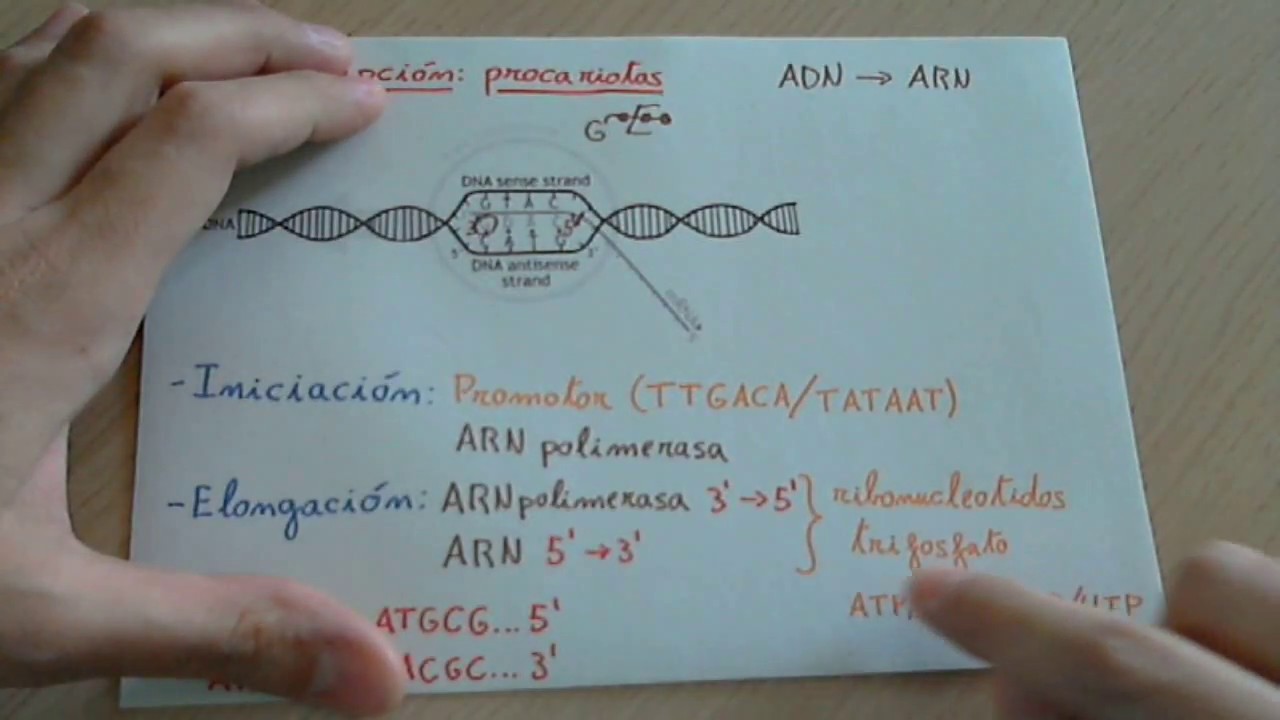 pción: procariotas
ADN → ARN
G
DNA sense strand
G T A C
DNA
3'
5'
5'
3'
DNA antisense
strand
- Iniciación: Promotor (TTGACA/TATAAT)
ARN polimerasa
- Elongación: ARN polimerasa 3' → 5' } ribonucleotidos
ARN 5' → 3' trifosfato
ATGCG... 5' /UTP
ACGC... 3'